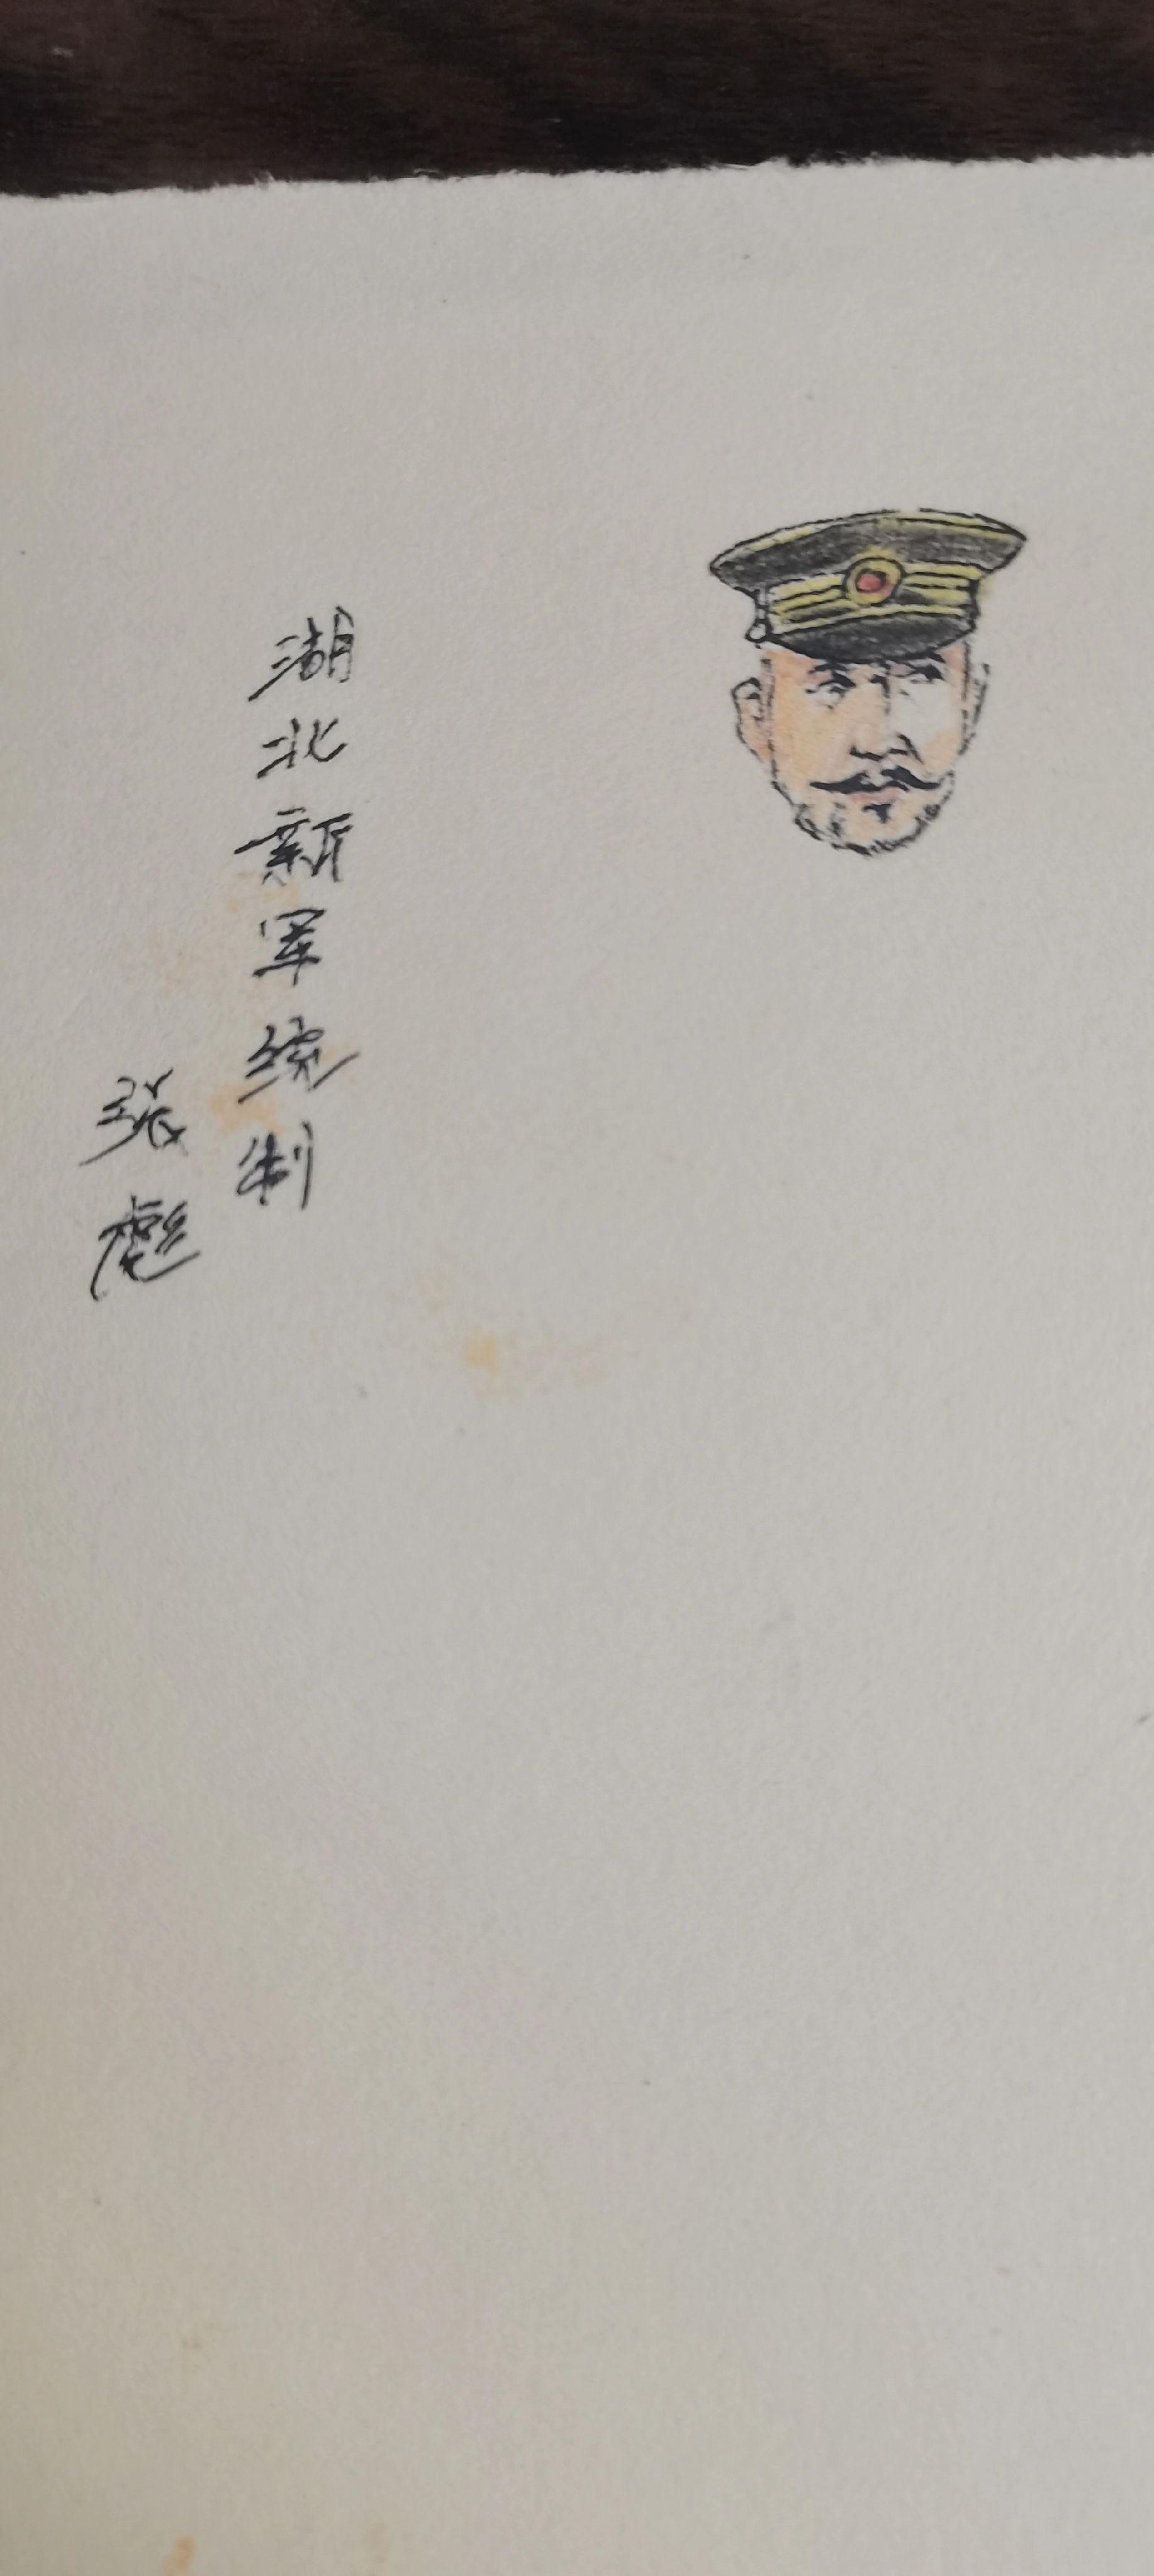 湖北新军统制
张彪